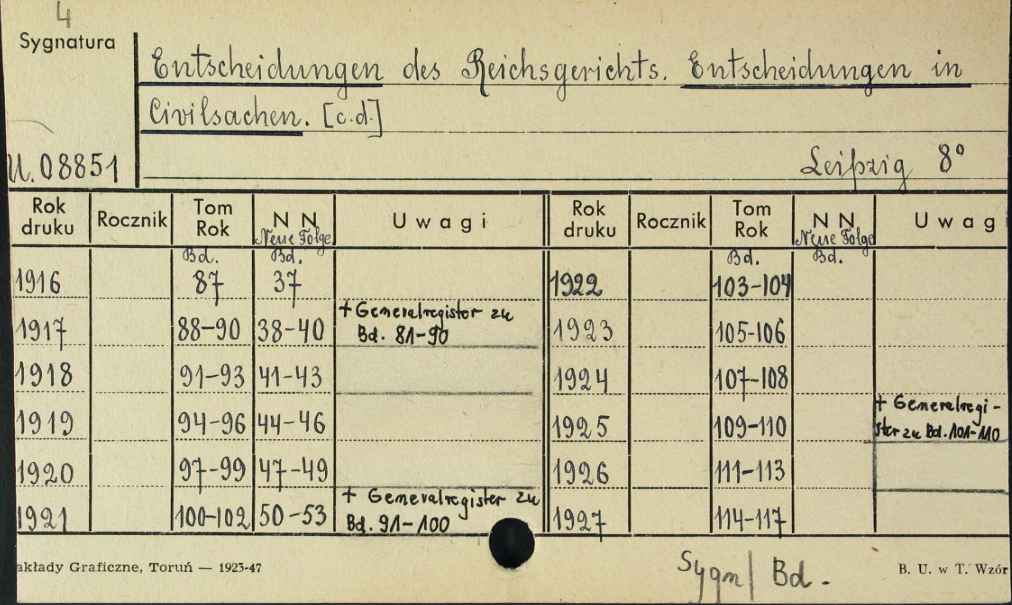 4
Sygnatura
Entscheidungen des Reichsgerichts. Entscheidungen in
Civilsachen. [c.d.]
U.08851
Leipzig 8°
Rok druku Rocznik Tom Rok N N Neue Folge Uwagi Rok druku Rocznik Tom Rok N N Neue Folge Uwag
Bd. Bd. Bd. Bd.
1916 87 37 1922 103-104
1917 88-90 38-40 + Generalregister zu Bd. 81-90 1923 105-106
1918 91-93 41-43 1924 107-108
1919 94-96 44-46 1925 109-110 + Generalregi- ster zu Bd. 101-110
1920 97-99 47-49 1926 111-113
1921 100-102 50-53 + Generalregister zu Bd. 91-100 1927 114-117
akłady Graficzne, Toruń — 1923-47
Sygn/ Bd.-
B. U. w T. Wzór